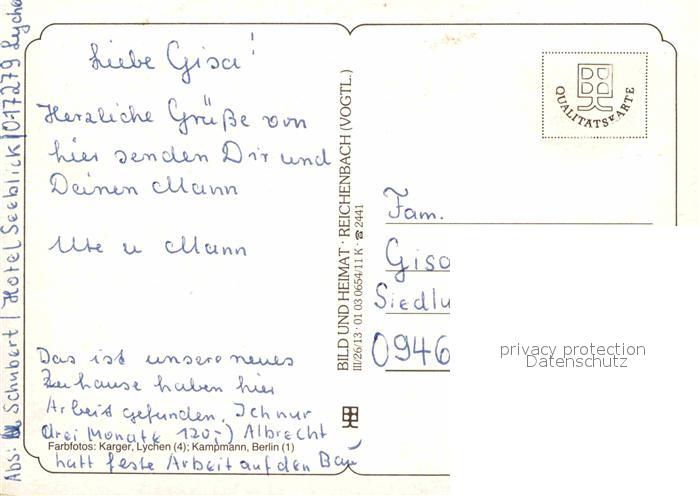 Liebe Gisa!
Herzliche Grüße von
hier senden Dir und
Deinen Mann
Ute u Mann
Das ist unsere neues
Zuhause haben hier
Arbeit gefunden. Ich nur
drei Monate 120,-) Albrecht
hatt feste Arbeit auf den Bau
Farbfotos: Karger, Lychen (4); Kampmann, Berlin (1)
Abs: Schubert / Hotel Seeblick / O-17279 Lyche
BILD UND HEIMAT · REICHENBACH (VOGTL.)
III/26/13 · 01 03 0654/11 K · ☎ 2441
QUALITÄTSKARTE
Fam.
Gisa
Siedlu
0946
privacy protection
Datenschutz